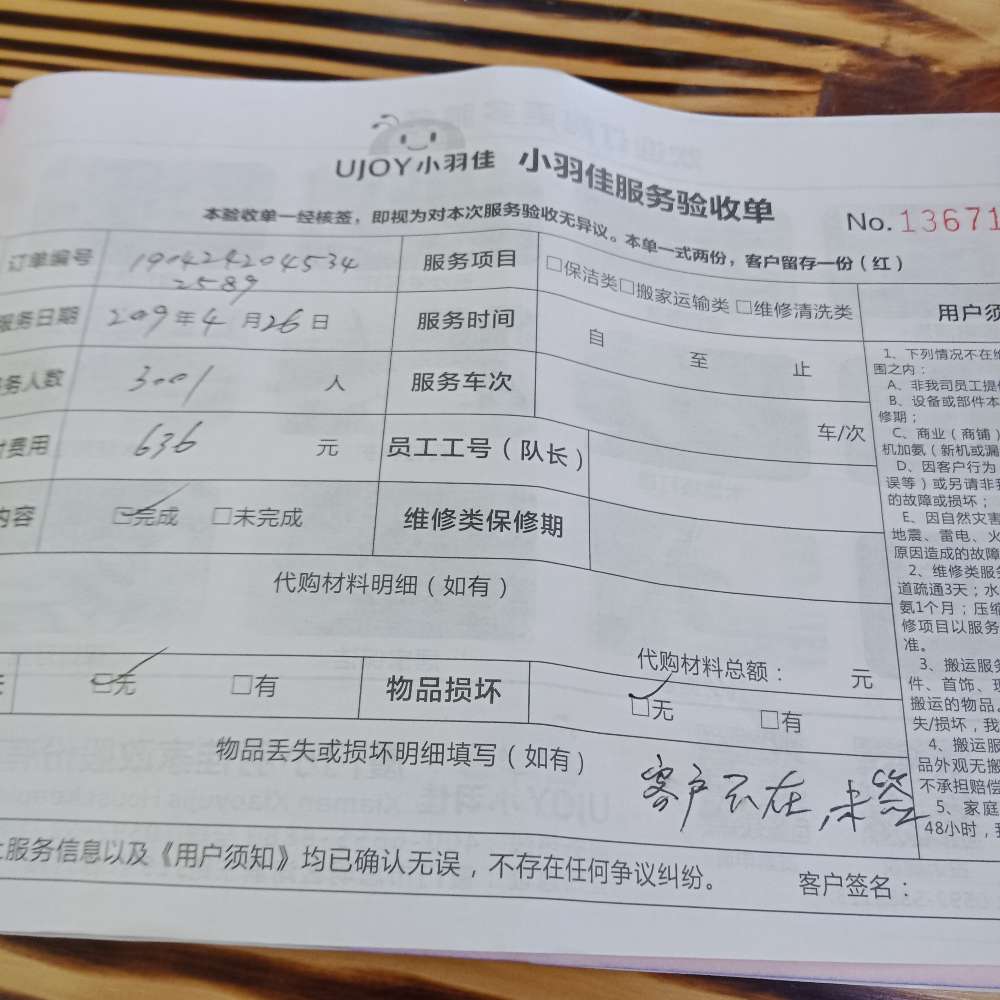 UJOY小羽佳 小羽佳服务验收单
No.13671
本验收单一经核签，即视为对本次服务验收无异议。本单一式两份，客户留存一份（红）
订单编号 190424204534
2589
服务项目 □保洁类□搬家运输类 □维修清洗类
服务日期 2019年4月26日
服务时间 自 至 止
务人数 3001 人
服务车次 车/次
费用 636 元
员工工号（队长）
内容 ☑完成 □未完成
维修类保修期
代购材料明细（如有）
代购材料总额： 元
☑无 □有
物品损坏 ☑无 □有
物品丢失或损坏明细填写（如有）
客户不在，未签
服务信息以及《用户须知》均已确认无误，不存在任何争议纠纷。 客户签名：
用户须
1、下列情况不在维
围之内：
A、非我司员工提供
B、设备或部件本
修期；
C、商业（商铺）
机加氨（新机或漏
D、因客户行为（
误等）或另请非我
的故障或损坏；
E、因自然灾害
地震、雷电、火
原因造成的故障
2、维修类服务
道疏通3天；水
氨1个月；压缩
修项目以服务
准。
3、搬运服务
件、首饰、现
搬运的物品。
失/损坏，我
4、搬运服
品外观无搬
不承担赔偿
5、家庭
48小时，我